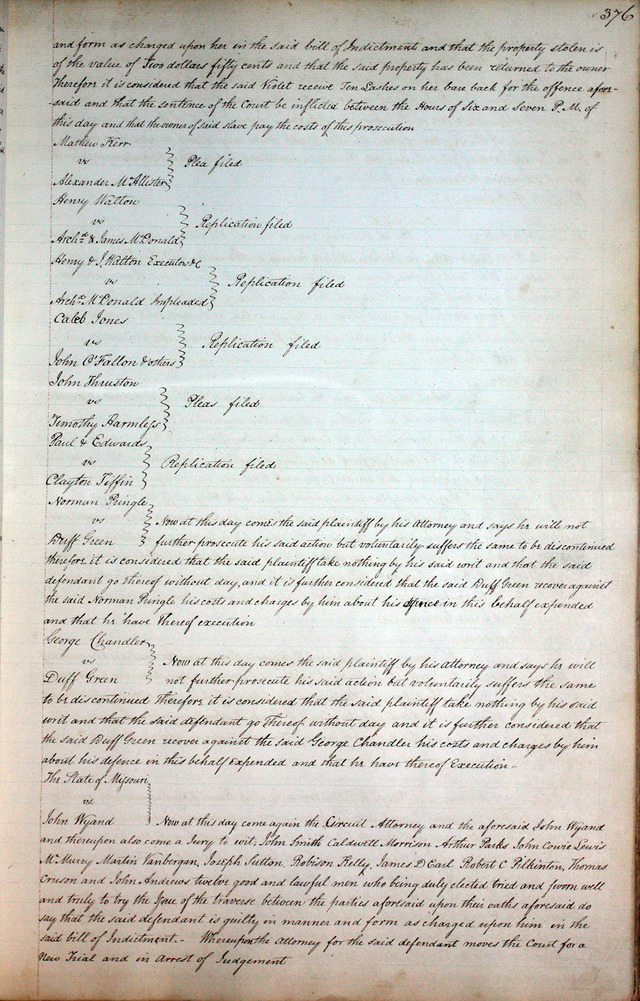 376
and form as charged upon her in the said bill of Indictment and that the property stolen is
of the value of Two dollars fifty cents and that the said property has been returned to the owner
Therefore it is considered that the said Violet receive Ten Lashes on her bare back for the offence afore-
said and that the sentence of the Court be inflicted between the Hours of Six and Seven P.M. of
this day and that the owner of said slave pay the costs of this prosecution
Mathew Kerr
vs
Plea filed
Alexander McAllister
Henry Walton
vs
Replication filed
Archd & James McDonald
Henry & J. Walton Executors &c
vs
Replication filed
Archd McDonald Impleaded
Caleb Jones
vs
Replication filed
John O'Fallon & others
John Thruston
vs
Pleas filed
Timothy Harmless
Paul & Edwards
vs
Replication filed
Clayton Tiffin
Norman Pringle
vs
Now at this day comes the said plaintiff by his Attorney and says he will not
Duff Green
further prosecute his said action but voluntarily suffers the same to be discontinued
therefore it is considered that the said plaintiff take nothing by his said writ and that the said
defendant go thereof without day, and it is further considered that the said Duff Green recover against
the said Norman Pringle his costs and charges by him about his in this behalf expended
and that he have thereof execution
George Chandler
vs
Now at this day comes the said plaintiff by his attorney and says he will
Duff Green
not further prosecute his said action but voluntarily suffers the same
to be discontinued Therefore it is considered that the said plaintiff take nothing by his said
writ and that the said defendant go thereof without day and it is further considered that
the said Duff Green recover against the said George Chandler his costs and charges by him
about his defence in this behalf expended and that he have thereof Execution -
The State of Missouri
vs
John Wyand
Now at this day come again the Circuit Attorney and the aforesaid John Wyand
and thereupon also come a Jury to wit, John Smith Caldwell Morrison Arthur Parks John Cowie Lewis
McMurry Martin Vanbergan, Joseph Sutton Robison Kelly, James D Earl Robert C Pilkinton, Thomas
Cruson and John Andrews twelve good and lawful men who being duly elected tried and sworn well
and truly to try the Issue of the traverse between the parties aforesaid upon their oaths aforesaid do
say that the said defendant is guilty in manner and form as charged upon him in the
said bill of Indictment. - Whereupon the Attorney for the said defendant moves the Court for a
New Trial and in Arrest of Judgement